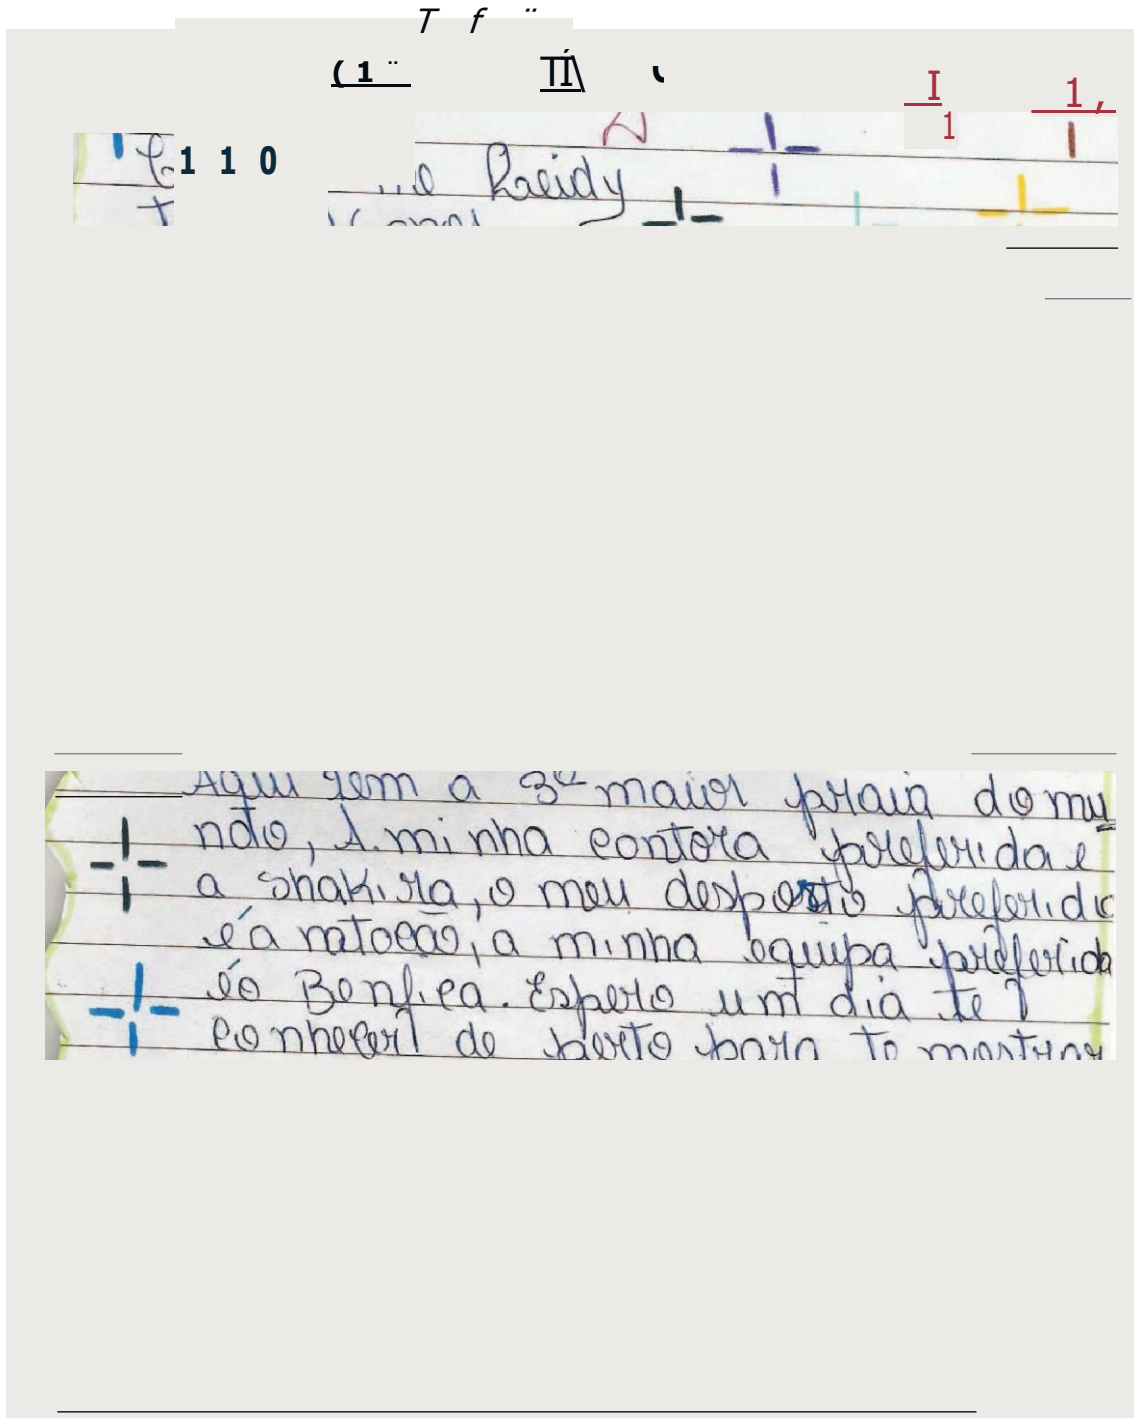 T f ¨
(1 ¨ TÍ\
I 1,
1
1 1 0
Raidy
Aqui tem a 3ª maior praia do mu
ndo, A minha contora preferida e
a shakira, o meu desporto preferido
é a natoção, a minha equipa preferida
é o Benfica. Espero um dia te
conhecer de perto para te mostrar